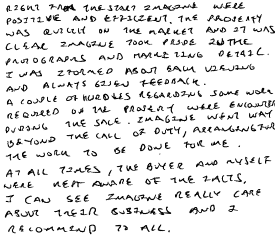 RIGHT FROM THE START IMAGINE WERE
POSITIVE AND EFFICIENT. THE PROPERTY
WAS QUICKLY ON THE MARKET AND IT WAS
CLEAR IMAGINE TOOK PRIDE IN THE
PHOTOGRAPHS AND MARKETING DETAIL.
I WAS INFORMED ABOUT EACH VIEWING
AND ALWAYS GIVEN FEEDBACK.
A COUPLE OF HURDLES REGARDING SOME WORK
REQUIRED ON THE PROPERTY WERE ENCOUNTERED
DURING THE SALE. IMAGINE WENT WAY
BEYOND THE CALL OF DUTY, ARRANGING FOR
THE WORK TO BE DONE FOR ME.
AT ALL TIMES, THE BUYER AND MYSELF
WERE KEPT AWARE OF THE FACTS,
I CAN SEE IMAGINE REALLY CARE
ABOUT THEIR BUSINESS AND I
RECOMMEND TO ALL.